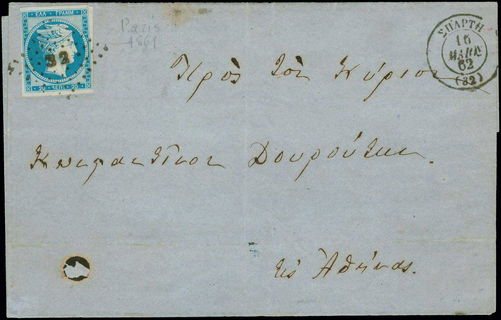 ΕΛΛ. ΓΡΑΜΜ.
20 ΛΕΠ. 20
32
Paris
1861
ΣΠΑΡΤΗ
16
ΜΑΡΤ
62
(32)
Πρὸς τὸν Κύριον
Δουρούτην
εἰς Ἀθήνας.